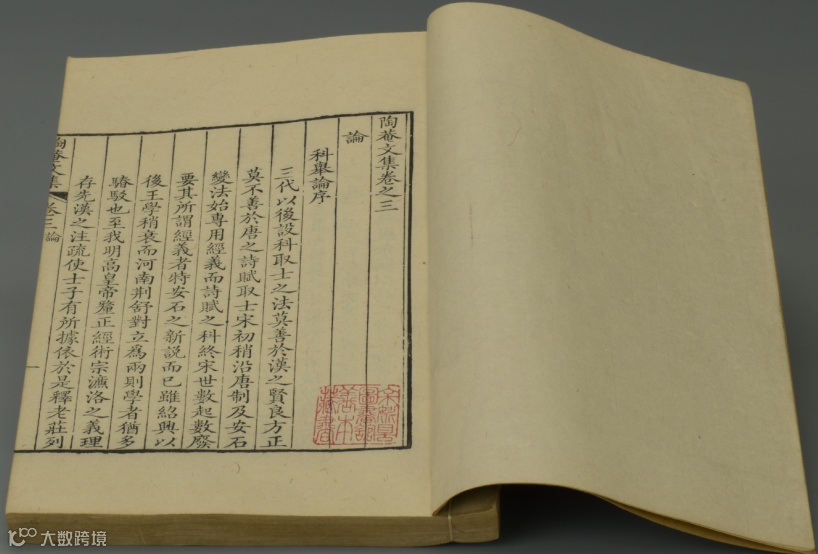 陶菴文集卷之三
論
科舉論序
三代以後設科取士之法莫善於漢之賢良方正
莫不善於唐之詩賦取士宋初稍沿唐制及安石
變法始專用經義而詩賦之科終宋世數起數廢
要其所謂經義者特安石之新說而已雖紹興以
後王學稍衰而河南荆舒對立為兩則學者猶多
踳駁也至我明高皇帝釐正經術宗濂洛之義理
存先漢之注疏使士子有所據依於是釋老莊列
陶菴文集 卷三論
圖書館
善本
藏書
大数跨境